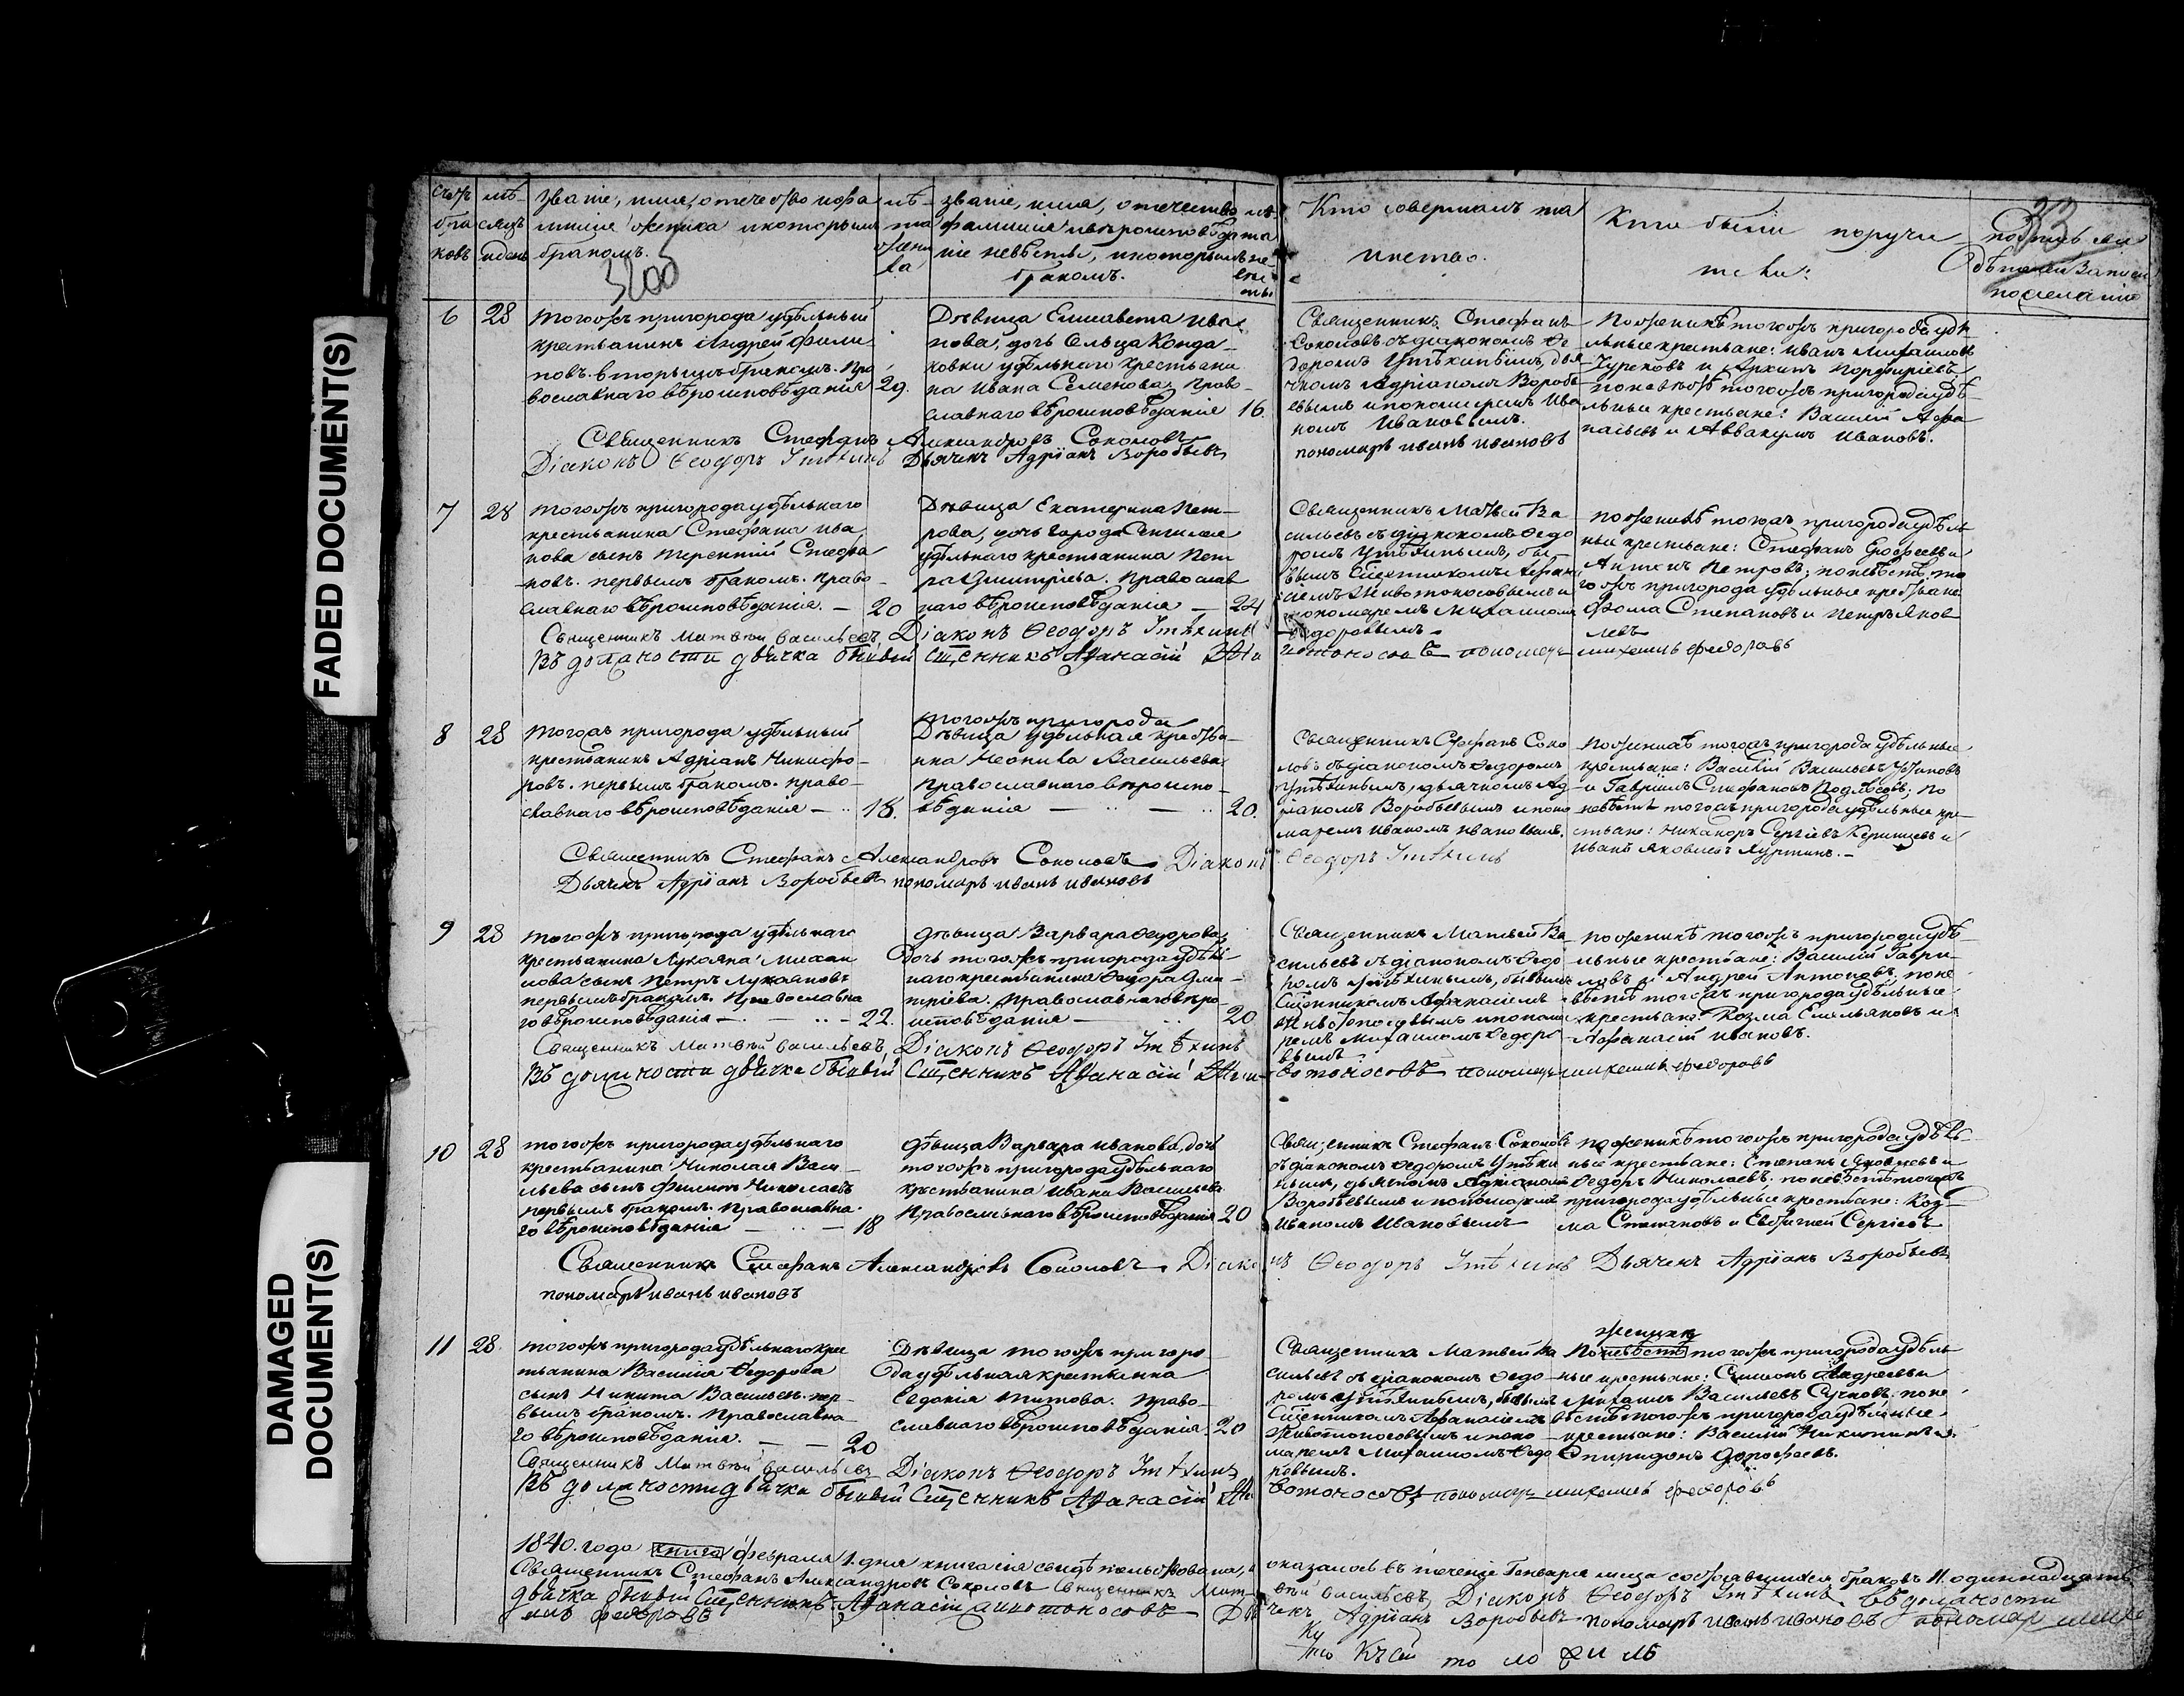 FADED DOCUMENT(S)
DAMAGED
DOCUMENT(S)
33
счетъ
бра
ковъ
мѣ-
сяцъ
и день
званіе, имя, отечество и фа
миліе жениха и которымъ
бракомъ.
лѣ-
та
жени
ха
званіе, имя, отечество
фамилія и вѣроисповѣда
ніе невѣсты, и которымъ
бракомъ.
Кто совершалъ та
инство.
Кто были поручи
тели:
по желанію
6 28
тогожъ пригорода удѣльный
крестьянинъ Андрей Фили
повъ. вторымъ бракомъ. Пра
вославнаго вѣроисповѣданія 29.
Дѣвица Елисавета Ива
нова, дочь Сельца Конда
ковки удѣльнаго крестьяни
на Ивана Семенова, Право-
славнаго вѣроисповѣданія 16.
Священникъ Стефанъ
Соколовъ съ діакономъ Ѳе
доромъ Утѣхинымъ, дья
чкомъ Адріаномъ Воробь
евымъ и пономаремъ Ива
номъ Ивановымъ.
пономарь иванъ ивановъ
По женихѣ тогожъ пригорода удѣ
льные крестьяне: Иванъ Михаиловъ
и Архипъ Порфиріевъ
по невѣстѣ тогожъ пригорода удѣ-
льные крестьяне: Василій Афа
насьевъ и Аввакумъ Ивановъ.
Священникъ Стефанъ Александровъ Соколовъ
Діаконъ Ѳеодоръ Утѣхинъ Дьячекъ Адріанъ Воробьевъ
7 28
тогожъ пригорода удѣльнаго
крестьянина Стефана Ива
нова сынъ Терентій Стефа
новъ. первымъ бракомъ. Право-
славнаго вѣроисповѣданія. — 20
Дѣвица Екатерина Пет-
рова, дочь города Сенгилея
удѣльнаго крестьянина Пет
ра Дмитріева. Православ
наго вѣроисповѣданія — 24
Священникъ Матвей Ва
сильевъ съ діакономъ Ѳедо
ромъ Утѣхинымъ, бы
вымъ Сщенникомъ Афана
сіемъ Животоносовымъ и
пономаремъ Михаиломъ
Ѳедоровымъ.
По женихѣ тогожъ пригорода удѣль
ные крестьяне: Стефанъ Ерофеевъ и
Антипъ Петровъ; по невѣстѣ то
гожъ пригорода удѣльные крестьяне
Фома Степановъ и Петръ Яков
левъ
Священникъ Матвѣй Васильевъ, Діаконъ Ѳеодоръ Утѣхинъ
Въ должности дьячка бывый Сщенникъ Афанасій Жи
вотоносовъ пономарь михаилъ федоровъ
8 28
тогожъ пригорода удѣльный
крестьянинъ Адріанъ Никифо-
ровъ. первымъ бракомъ. право-
славнаго вѣроисповѣданія — 18.
тогожъ пригорода
Дѣвица удѣльная крестья-
нка Неонила Васильева
Православнаго вѣроиспо-
вѣданія — — 20.
Священникъ Стефанъ Соко
ловъ съ діакономъ Ѳедоромъ
Утѣхинымъ, дьячкомъ Ад-
ріаномъ Воробьевымъ и поно
маремъ Иваномъ Ивановымъ.
По женихѣ тогожъ пригорода удѣльные
крестьяне: Василій Васильевъ
и Гавріилъ Стефановъ; По
невѣстѣ тогожъ пригорода удѣльные кре-
стьяне: Никаноръ Сергіевъ и
Иванъ Яковлевъ
Священникъ Стефанъ Александровъ Соколовъ Діаконъ Ѳеодоръ Утѣхинъ
Дьячекъ Адріанъ Воробьевъ пономарь иванъ ивановъ
9 28
тогожъ пригорода удѣльнаго
крестьянина Лукояна Михаи
лова сынъ Петръ Лукояновъ
первымъ бракомъ. Православна
го вѣроисповѣданія — 22.
Дѣвица Варвара Ѳедорова,
Дочь тогожъ пригорода удѣль-
наго крестьянина Ѳедора Дми-
тріева. Православнаго вѣро-
исповѣданія — 20
Священникъ Матвей Ва
сильевъ съ діакономъ Ѳедо
ромъ Утѣхинымъ, бывымъ
Сщенникомъ Афанасіемъ
Животоносовымъ и понома
ремъ Михаиломъ Ѳедоро
вымъ
По женихѣ тогожъ пригорода удѣ-
льные крестьяне: Василій Гаври-
ловъ и Андрей Антоновъ. по не
вѣстѣ тогожъ пригорода удѣльные
крестьяне: Козма Емельяновъ и
Афанасій Ивановъ.
Священникъ Матвѣй Васильевъ, Діаконъ Ѳеодоръ Утѣхинъ
Въ должности дьячка бывый Сщенникъ Афанасій Жи-
вотоносовъ пономарь михаилъ федоровъ
10 28
тогожъ пригорода удѣльнаго
крестьянина Николая Васи-
льева сынъ Филипъ Николаевъ
первымъ бракомъ. Православна-
го вѣроисповѣданія — 18
Дѣвица Варвара Иванова, дочь
тогожъ пригорода удѣльнаго
крестьянина Ивана Васильева
Православнаго вѣроисповѣданія 20
Священникъ Стефанъ Соколовъ
съ діакономъ Ѳедоромъ Утѣхи
нымъ, дьячкомъ Адріаномъ
Воробьевымъ и пономаремъ
Иваномъ Ивановымъ
По женихѣ тогожъ пригорода удѣль-
ные крестьяне: Степанъ Яковлевъ и
Ѳедоръ Николаевъ. по невѣстѣ тогожъ
пригорода удѣльные крестьяне: Коз-
ма Степановъ и Евстигней Сергіевъ
Священникъ Стефанъ Александровъ Соколовъ. Діаконъ Ѳеодоръ Утѣхинъ Дьячекъ Адріанъ Воробьевъ
пономарь иванъ ивановъ
11 28.
тогожъ пригорода удѣльнаго крес
тьянина Василія Ѳедорова
сынъ Никита Васильевъ. пер-
вымъ бракомъ. Православна-
го вѣроисповѣданія. — — 20
Дѣвица тогожъ приго
рода удѣльная крестьянка
Евдокія Титова. Право-
славнаго вѣроисповѣданія. 20
Священникъ Матвей Ва
сильевъ съ діакономъ Ѳедо
ромъ Утѣхинымъ, бывымъ
Сщенникомъ Афанасіемъ
Животоносовымъ и поно
маремъ Михаиломъ Ѳедо
ровымъ.
женихѣ
По невѣстѣ тогожъ пригорода удѣль
ные крестьяне: Симеонъ Андреевъ и
Михаилъ Васильевъ Сучковъ. по не
вѣстѣ тогожъ пригорода удѣльные
крестьяне: Василій Никитинъ и
Спиридонъ Дорофеевъ.
Священникъ Матвѣй Васильевъ Діаконъ Ѳеодоръ Утѣхинъ
Въ должности дьячка бывый Сщенникъ Афанасій Жи
вотоносовъ пономарь михаилъ федоровъ
1840. года книга февраля 1. дня книга сія свидѣтельствована, и оказалось въ теченіе Генваря мца состоявшихся браковъ 11. одиннадцать
Священникъ Стефанъ Александровъ Соколовъ Священникъ Матвѣй Васильевъ, Діаконъ Ѳеодоръ Утѣхинъ. Въ должности
дьячка бывый Сщенникъ Афанасій Животоносовъ Дьячекъ Адріанъ Воробьевъ пономарь иванъ ивановъ пономарь михаилъ федоровъ